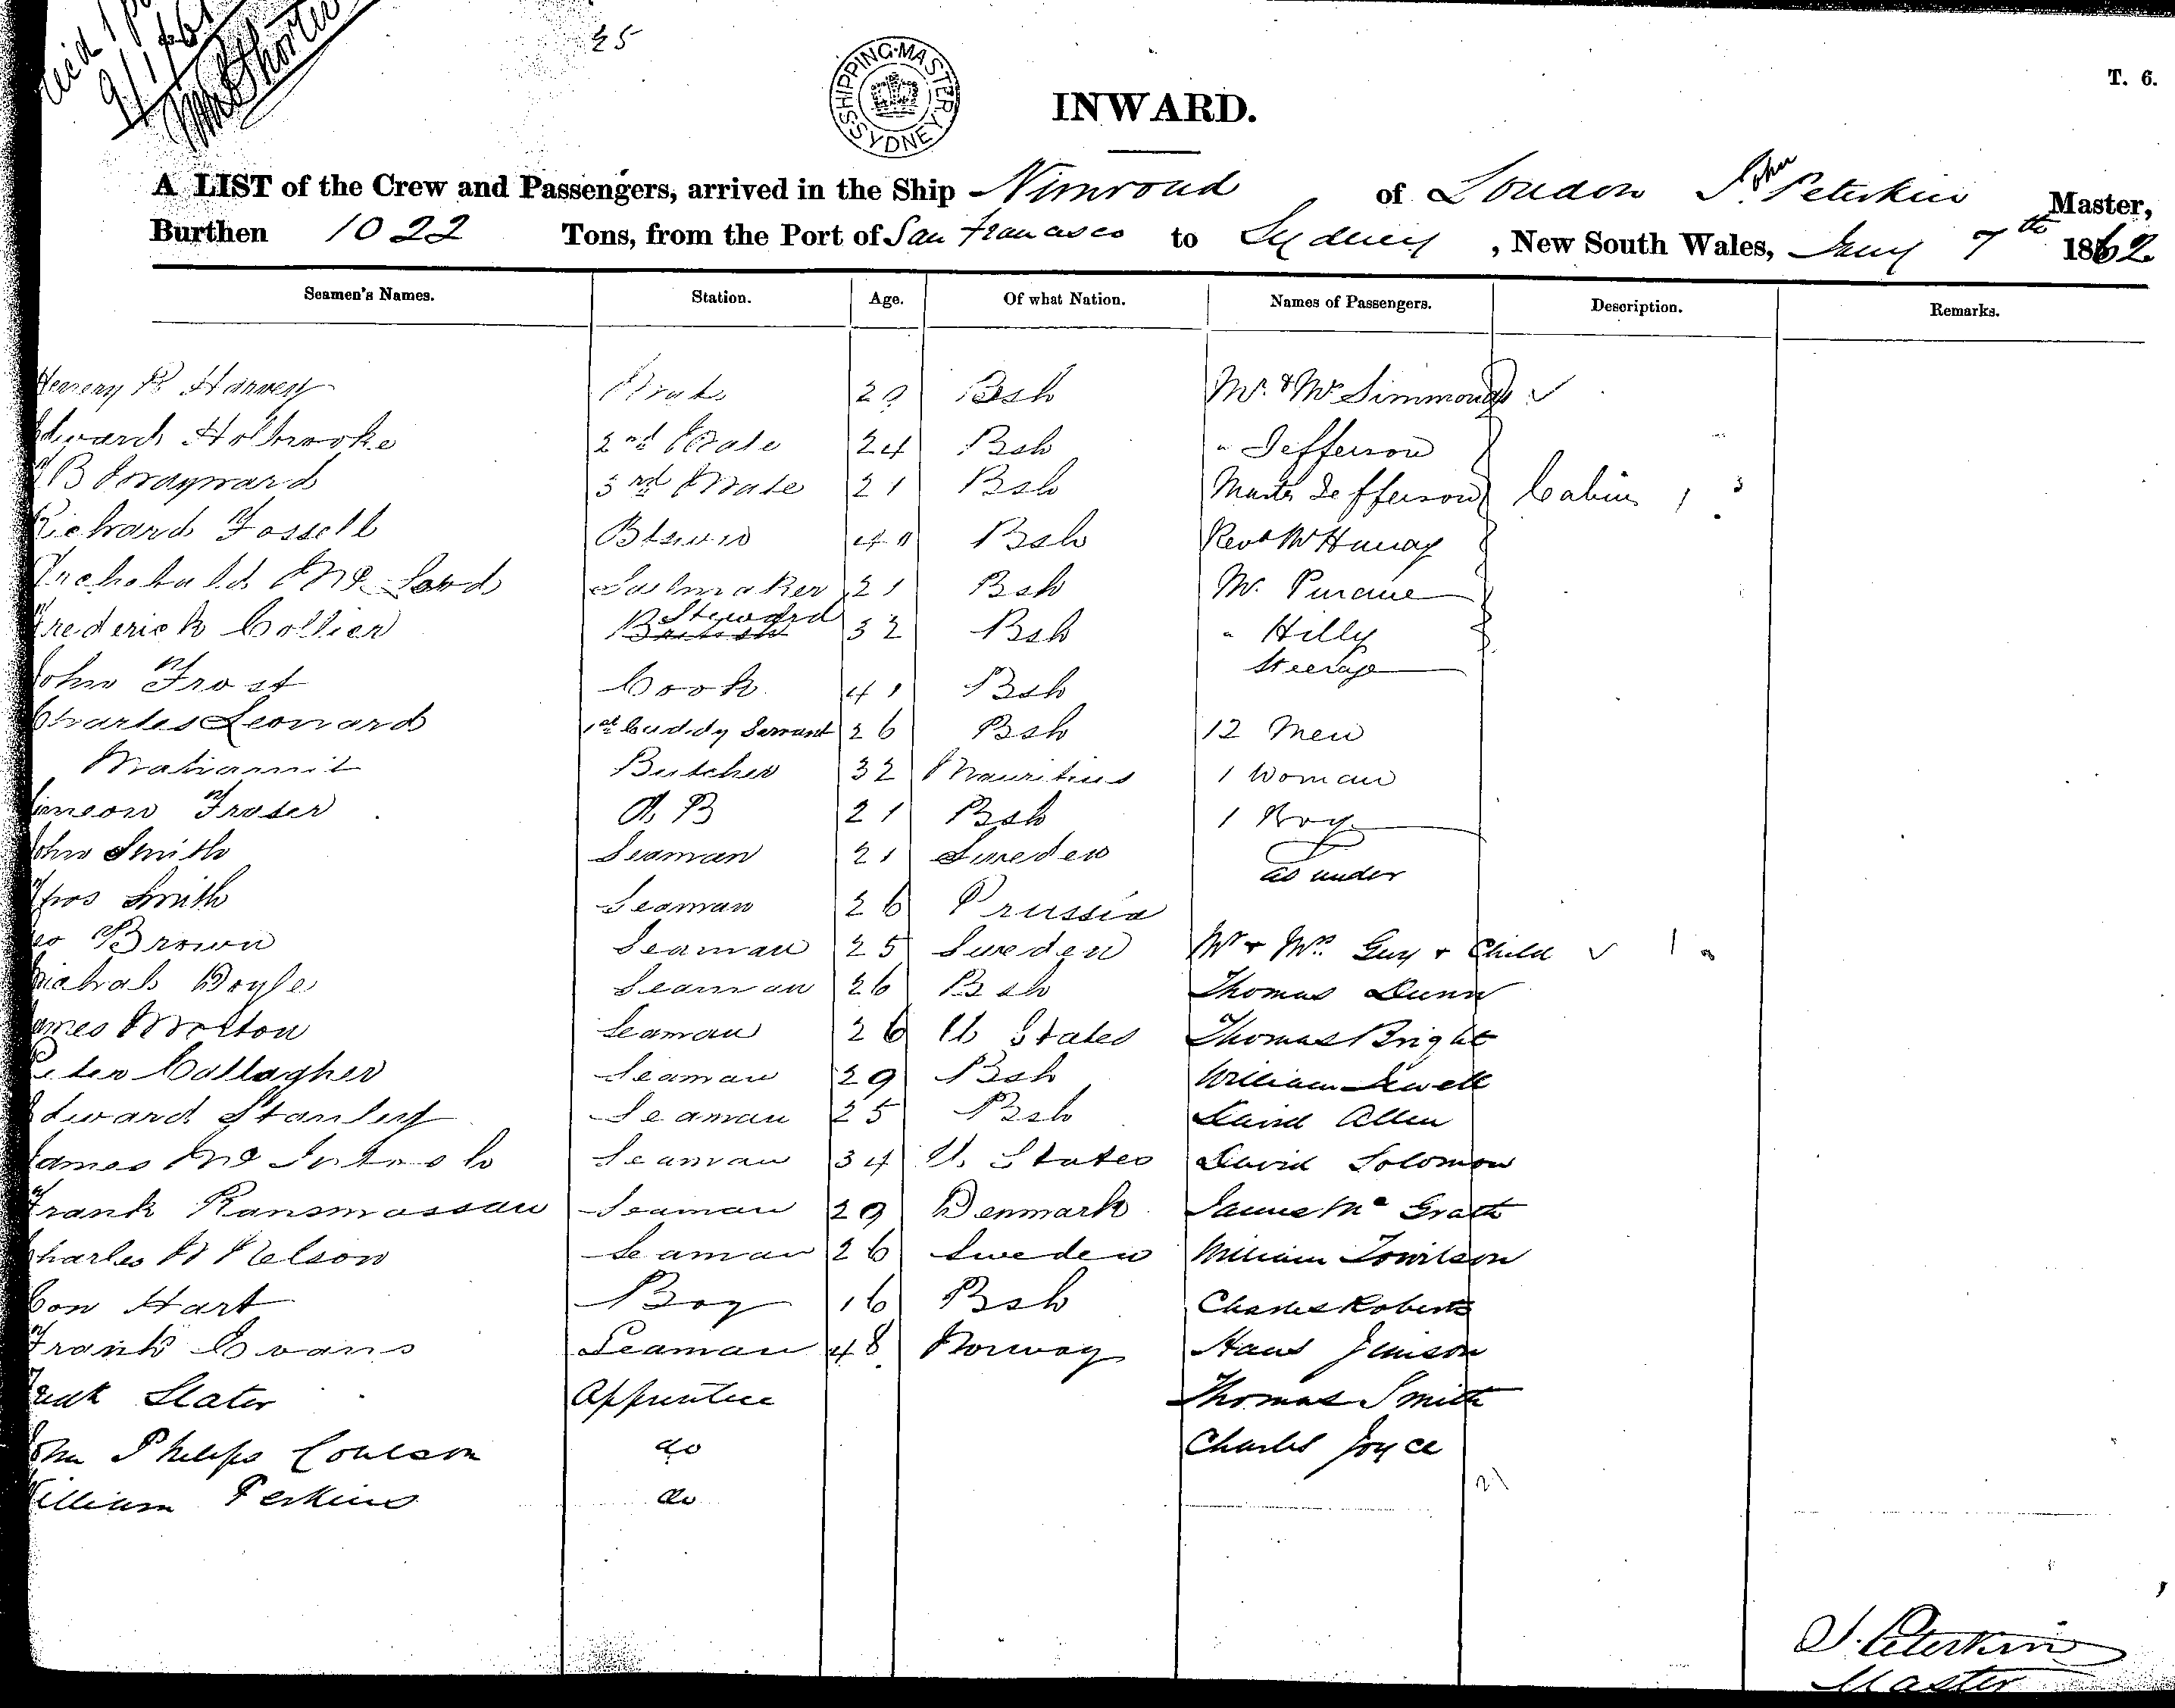 25
SHIPPING MASTER SYDNEY
T. 6.
INWARD.
A LIST of the Crew and Passengers, arrived in the Ship Nimroud of London John Peterkin Master,
Burthen 1022 Tons, from the Port of San Francisco to Sydney, New South Wales, Jany 7th 1862
Seamen's Names. Station. Age. Of what Nation. Names of Passengers. Description. Remarks.
Henery R Harvey Mate 29 Bsh Mr. & Mrs Simmonds
Edward Holbrooke 2nd Mate 24 Bsh " Jefferson
B Maynard 3rd Mate 21 Bsh Master Jefferson Cabin
Richard Fossell Bsh Revd Mr
Archabald Mc Sailmaker 21 Bsh Mr.
Frederick Collier Steward 32 Bsh " Hilly
Steerage
John Frost Cook 41 Bsh
Charles Leonard 1st Cuddy Servant 26 Bsh 12 Men
Butcher 32 Mauritius 1 Woman
Simeon Fraser A B 21 Bsh 1 Boy
John Smith Seaman 21 Sweden as under
Thos Smith Seaman 26 Prussia
Geo Brown Seaman 25 Sweden Mr & Mrs Guy & Child
Michal Boyle Seaman 26 Bsh Thomas Dunn
James Morton Seaman 26 U States Thomas Bright
Peter Callagher Seaman 29 Bsh William Sewell
Edward Stanley Seaman 25 Bsh David Allen
James Mc Intosh Seaman 34 U. States David Solomon
Frank Ransmassan Seaman 29 Denmark James Mc Grath
Charles N Nelson Seaman 26 Sweden William Towilson
Con Hart Boy 16 Bsh Charles Roberts
Frank Evans Seaman 48 Norway Hans Jenison
Slater Apprentice Thomas Smith
John Philips Coulson do Charles Joyce
William Perkins do
21
J. Peterkin
Master